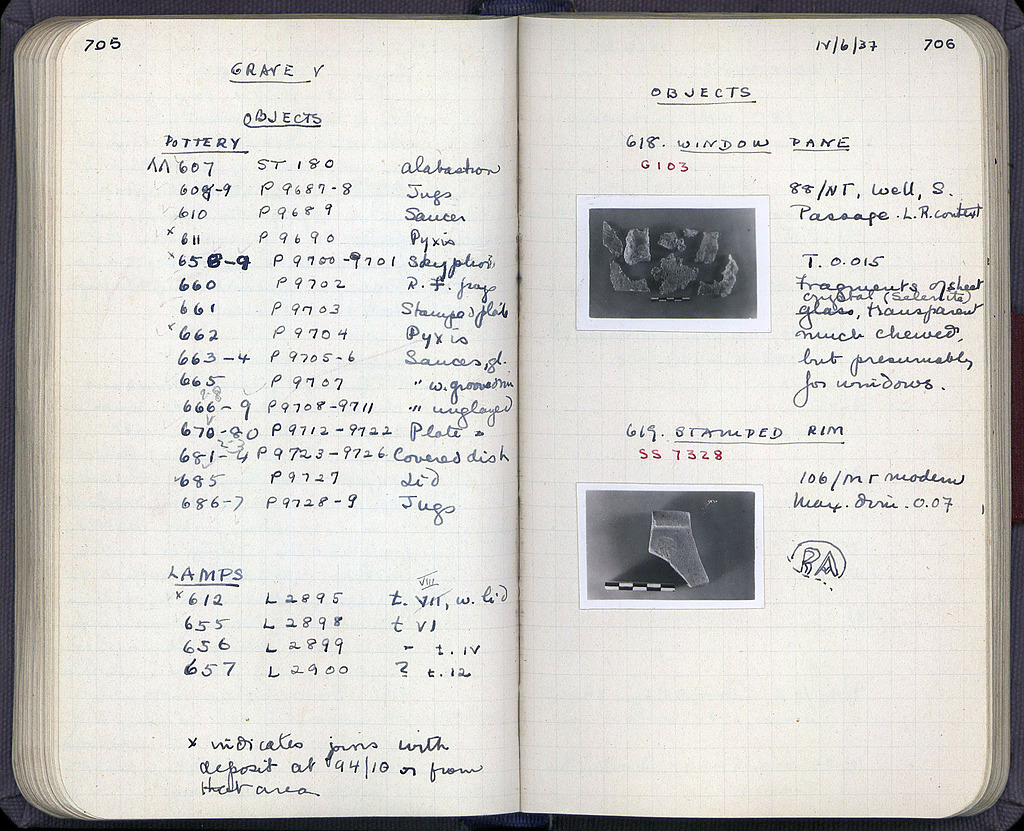 705
GRAVE V
OBJECTS
POTTERY
ΛΛ 607 ST 180 alabastron
608-9 P 9687-8 Jugs
610 P 9689 Saucer
x 611 P 9690 Pyxis
x 658-9 P 9700-9701 Skyphoi
660 P 9702 R.F. frags
661 P 9703 Stamped plate
x 662 P 9704 Pyxis
663-4 P 9705-6 Saucers, gl.
665 P 9707 " w. grooved rim
666-9 P 9708-9711 " unglazed
670-80 P 9712-9722 Plate "
681-4 P 9723-9726 Covered dish
685 P 9727 Lid
686-7 P 9728-9 Jugs
LAMPS
VIII
x 612 L 2895 t. VII, w. lid
655 L 2898 t VI
656 L 2899 " t. IV
657 L 2900 ? t. 12
x indicates joins with
deposit at 94/10 or from
that area
IV/6/37 706
OBJECTS
618. WINDOW PANE
G 103
88/ΝΓ, Well, S.
Passage. L.R. context
T. 0.015
Fragments of sheet
crystal (Selenite)
glass, transparent
much chewed,
but presumably
for windows.
619. STAMPED RIM
SS 7328
106/ΜΓ modern
Max. dim. 0.07
RA